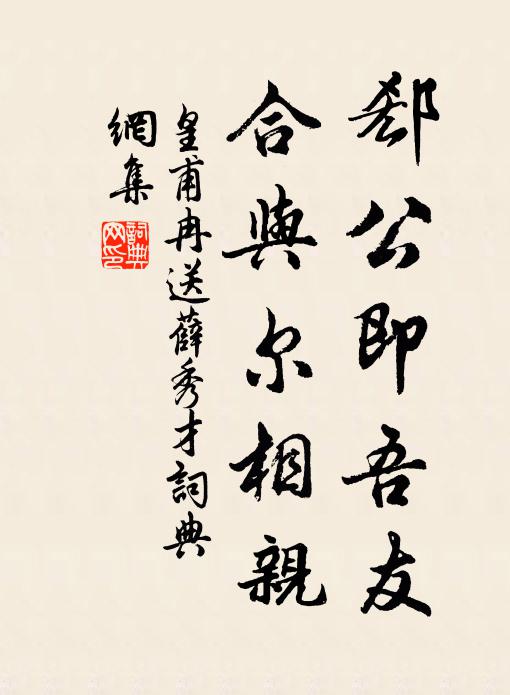 郄公即吾友
合與尔相親
皇甫冉送薛秀才詞典
網集
詞典
网印